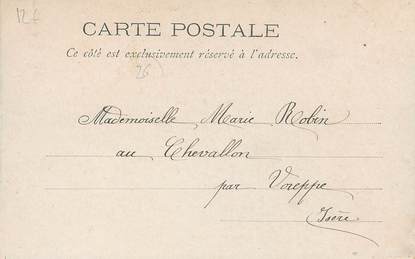 12 f
CARTE POSTALE
Ce côté est exclusivement réservé à l'adresse.
26
Mademoiselle Marie Robin
au Chevallon
par Voreppe
Isère